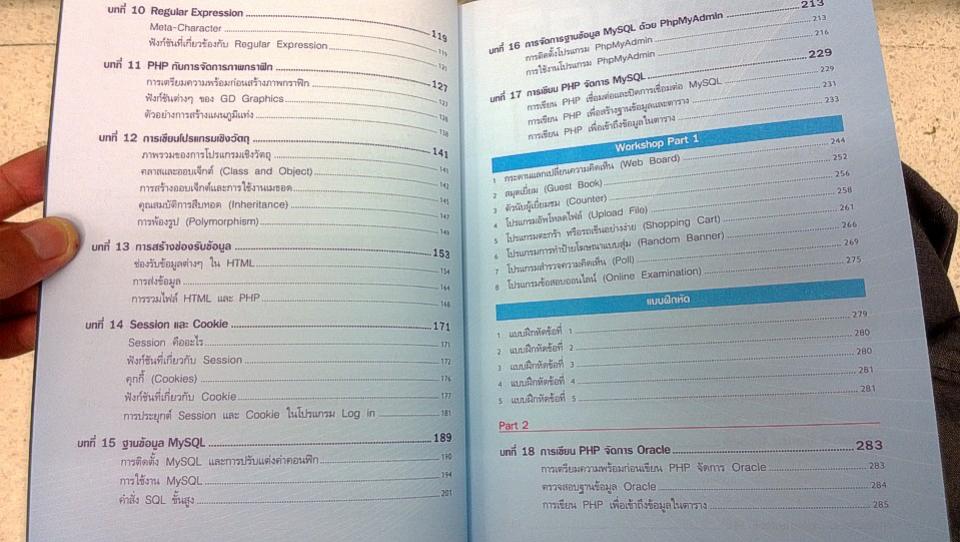 บทที่ 10 Regular Expression 119
Meta-Character 119
ฟังก์ชันที่เกี่ยวข้องกับ Regular Expression 121
บทที่ 11 PHP กับการจัดการภาพกราฟิก 127
การเตรียมความพร้อมก่อนสร้างภาพกราฟิก 127
ฟังก์ชันต่างๆ ของ GD Graphics 128
ตัวอย่างการสร้างแผนภูมิแท่ง 138
บทที่ 12 การเขียนโปรแกรมเชิงวัตถุ 141
ภาพรวมของการโปรแกรมเชิงวัตถุ 141
คลาสและออบเจ็กต์ (Class and Object) 142
การสร้างออบเจ็กต์และการใช้งานเมธอด 145
คุณสมบัติการสืบทอด (Inheritance) 147
การพ้องรูป (Polymorphism) 149
บทที่ 13 การสร้างช่องรับข้อมูล 153
ช่องรับข้อมูลต่างๆ ใน HTML 154
การส่งข้อมูล 164
การรวมไฟล์ HTML และ PHP 168
บทที่ 14 Session และ Cookie 171
Session คืออะไร 171
ฟังก์ชันที่เกี่ยวกับ Session 172
คุกกี้ (Cookies) 176
ฟังก์ชันที่เกี่ยวกับ Cookie 177
การประยุกต์ Session และ Cookie ในโปรแกรม Log in 181
บทที่ 15 ฐานข้อมูล MySQL 189
การติดตั้ง MySQL และการปรับแต่งค่าคอนฟิก 190
การใช้งาน MySQL 194
คำสั่ง SQL ขั้นสูง 201
บทที่ 16 การจัดการฐานข้อมูล MySQL ด้วย PhpMyAdmin 213
การติดตั้งโปรแกรม PhpMyAdmin 213
การใช้งานโปรแกรม PhpMyAdmin 216
บทที่ 17 การเขียน PHP จัดการ MySQL 229
การเขียน PHP เชื่อมต่อและปิดการเชื่อมต่อ MySQL 229
การเขียน PHP เพื่อสร้างฐานข้อมูลและตาราง 231
การเขียน PHP เพื่อเข้าถึงข้อมูลในตาราง 233
Workshop Part 1
1 กระดานแลกเปลี่ยนความคิดเห็น (Web Board) 244
2 สมุดเยี่ยม (Guest Book) 252
3 ตัวนับผู้เยี่ยมชม (Counter) 256
4 โปรแกรมอัพโหลดไฟล์ (Upload File) 258
5 โปรแกรมตะกร้า หรือรถเข็นอย่างง่าย (Shopping Cart) 261
6 โปรแกรมการทำป้ายโฆษณาแบบสุ่ม (Random Banner) 266
7 โปรแกรมสำรวจความคิดเห็น (Poll) 269
8 โปรแกรมข้อสอบออนไลน์ (Online Examination) 275
แบบฝึกหัด
1 แบบฝึกหัดข้อที่ 1 279
2 แบบฝึกหัดข้อที่ 2 280
3 แบบฝึกหัดข้อที่ 3 280
4 แบบฝึกหัดข้อที่ 4 281
5 แบบฝึกหัดข้อที่ 5 281
Part 2
บทที่ 18 การเขียน PHP จัดการ Oracle 283
การเตรียมความพร้อมก่อนเขียน PHP จัดการ Oracle 283
ตรวจสอบฐานข้อมูล Oracle 284
การเขียน PHP เพื่อเข้าถึงข้อมูลในตาราง 285